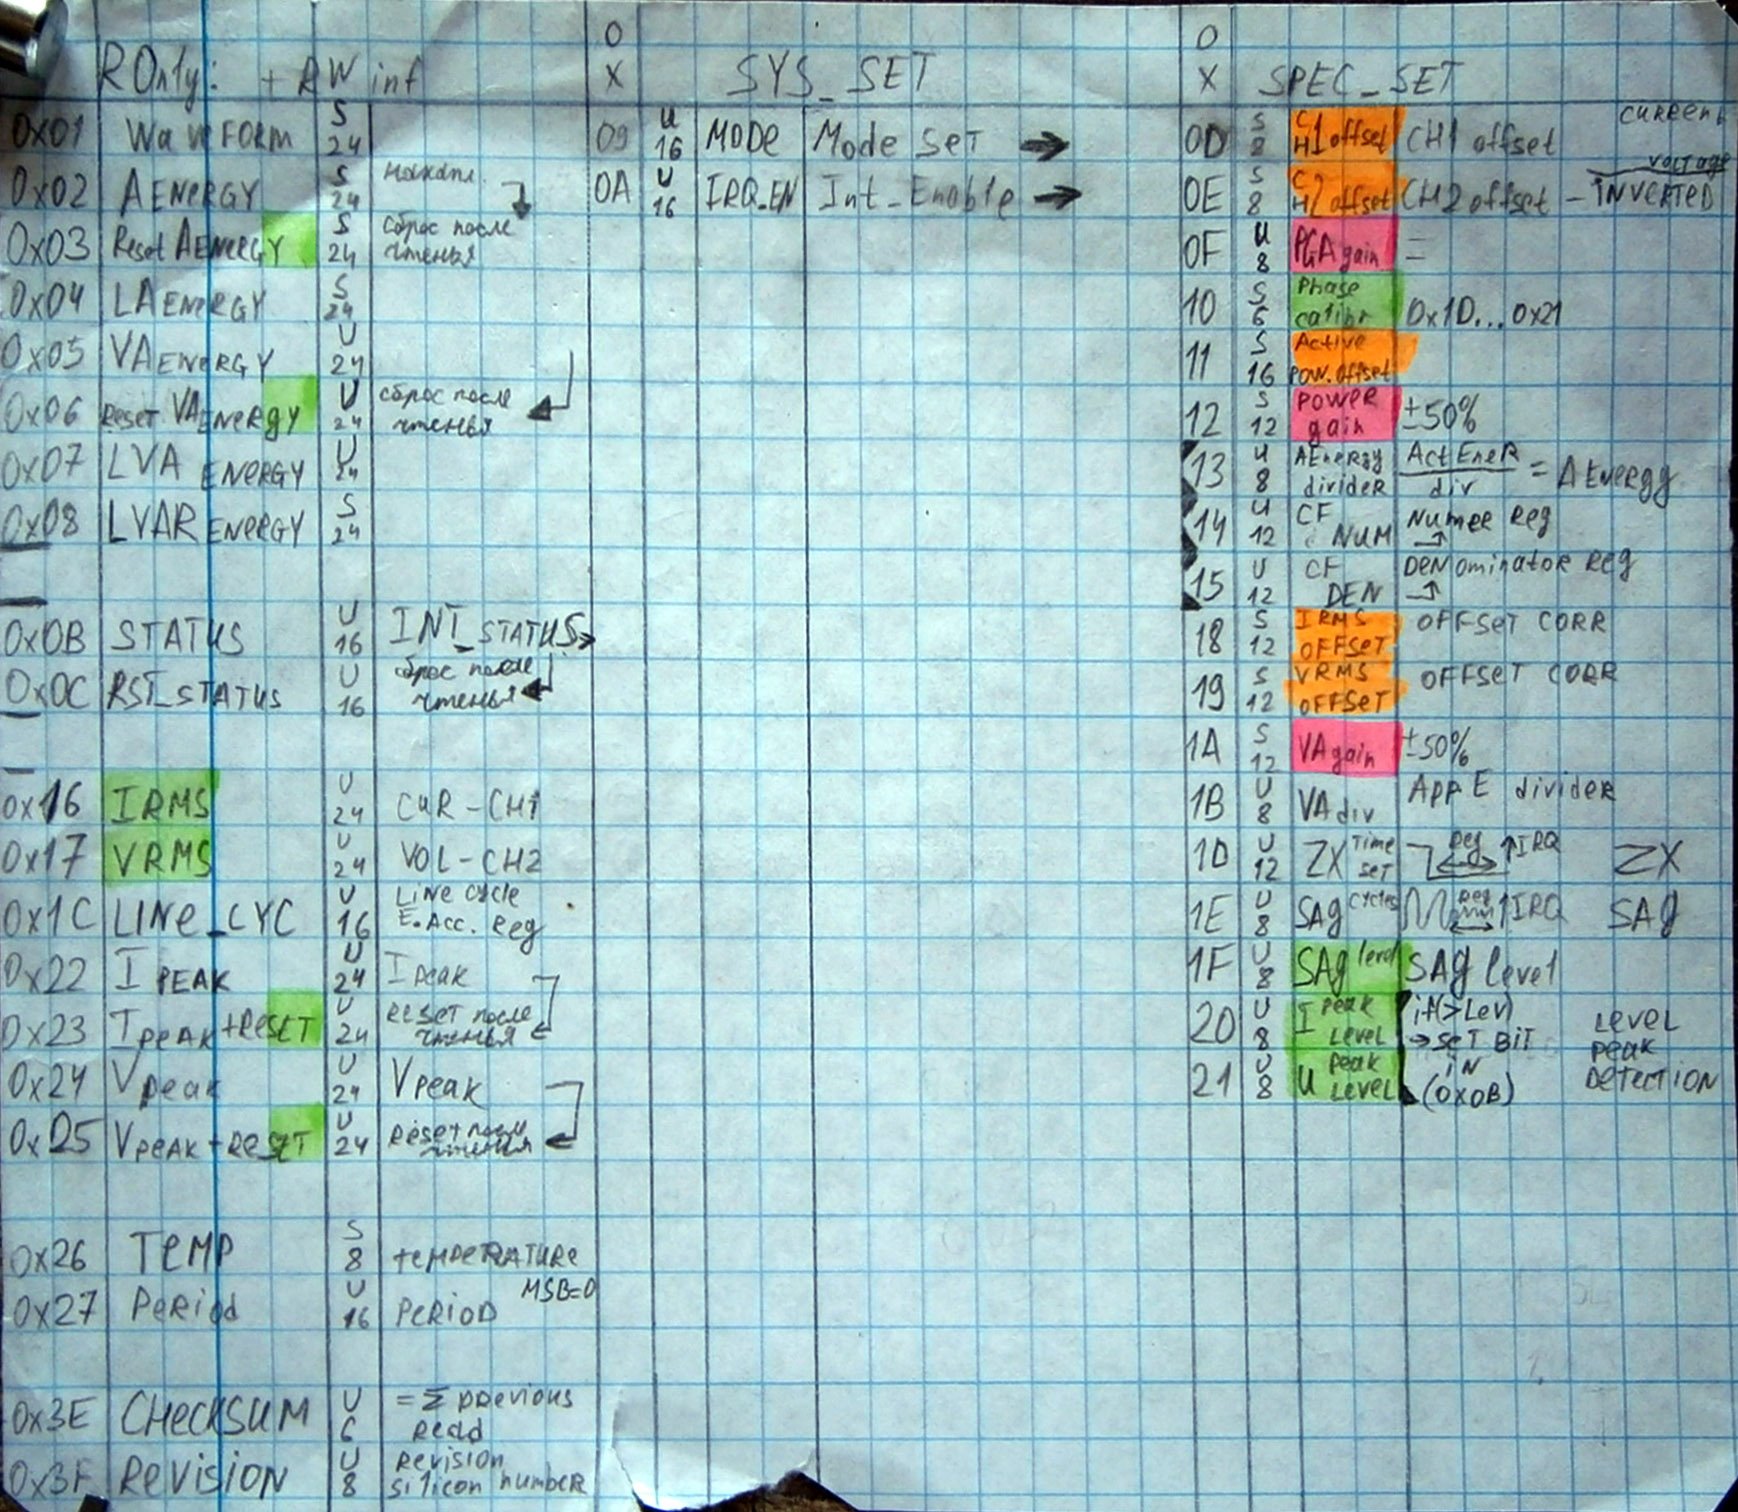 ROnly: + RW inf
0x01 WaveFORM S 24
0x02 AENERGY S 24 накапл.
0x03 Reset AENERGY S 24 сброс после
чтенья
0x04 LAENERGY S 24
0x05 VAENERGY U 24
0x06 Reset VAENERGY U 24 сброс после
чтенья
0x07 LVA ENERGY U 24
0x08 LVAR ENERGY S 24
0x0B STATUS U 16 INT_STATUS
0x0C RST_STATUS U 16 сброс после
чтенья
0x16 IRMS U 24 CUR-CH1
0x17 VRMS U 24 VOL-CH2
0x1C LINE_CYC U 16 Line cycle
E.Acc. Reg
0x22 I PEAK U 24 I peak
0x23 I PEAK+RESET U 24 RESET после
чтенья
0x24 Vpeak U 24 Vpeak
0x25 VPEAK+RESET U 24 Reset после
чтенья
0x26 TEMP S 8 TEMPERATURE
0x27 Period U 16 PERIOD MSB=0
0x3E CHECKSUM U 6 = Σ previous
read
0x3F REVISION U 8 Revision
silicon number
0X SYS_SET
09 U 16 MODE Mode Set →
0A U 16 IRQ_EN Int_Enable →
0X SPEC_SET
0D S 8 CH1 offset CH1 offset current
0E S 8 CH2 offset CH2 offset - INVERTED voltage
0F U 8 PGA gain =
10 S 6 Phase calibr 0x1D...0x21
11 S 16 Active POW.offset
12 S 12 POWER gain ±50%
13 U 8 AENERGY divider ActEneR / div = AEnergy
14 U 12 CF NUM Numer Reg
15 U 12 CF DEN DENominator Reg
18 S 12 IRMS OFFSET OFFSET CORR
19 S 12 VRMS OFFSET OFFSET CORR
1A S 12 VAgain ±50%
1B U 8 VAdiv App E divider
1D U 12 ZX Time SET Reg ↑IRQ ZX
1E U 8 SAg cycles Reg ↑IRQ SAg
1F U 8 SAg level SAg level
20 U 8 I peak LEVEL if(>Lev)
→SET BIT
21 U 8 U peak LEVEL iN
(0x0B)
LEVEL
Peak
DETECTION